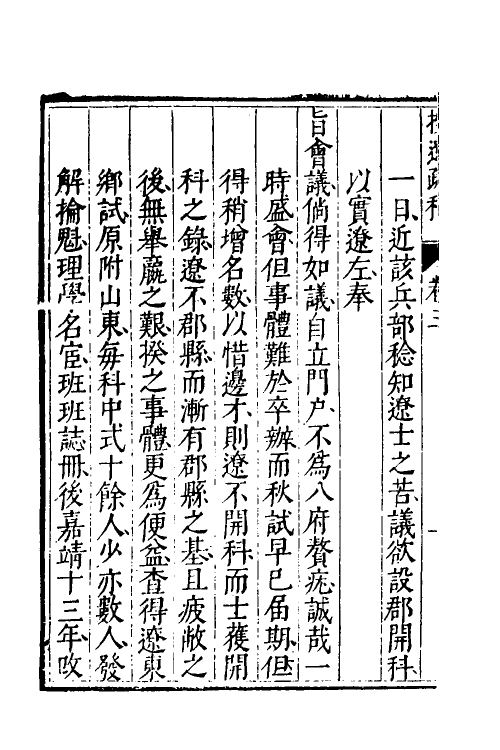 按遼疏稿
卷三
一日近該兵部稔知遼士之苦議欲設郡開科
以實遼左奉
旨會議倘得如議自立門戶不爲八府贅疣誠哉一
時盛會但事體難於卒辦而秋試早已屆期但
得稍增名數以惜邊才則遼不開科而士獲開
科之錄遼不郡縣而漸有郡縣之基且疲敝之
後無舉羸之艱揆之事體更爲便益查得遼東
鄉試原附山東每科中式十餘人少亦數人發
解掄魁理學名宦班班誌冊後嘉靖十三年改